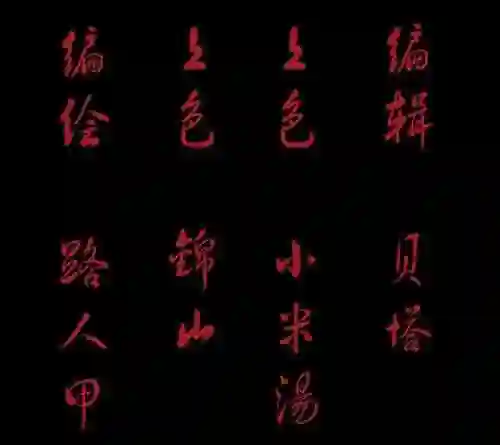 编辑 贝塔
上色 小米湯
上色 錦山
编绘 路人甲